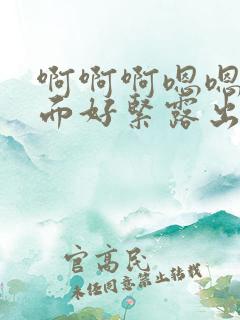 啊啊啊嗯嗯
而好紧露出
官高民
未经同意禁止转载